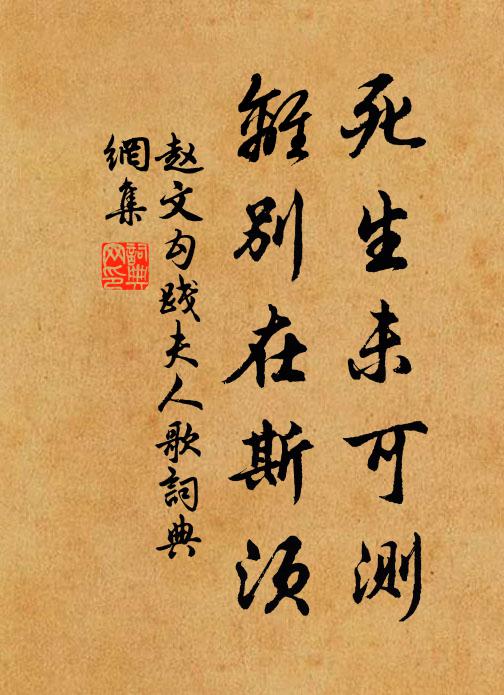 死生未可测
離别在斯须
赵文勾践夫人歌词典
網集
詞典网印